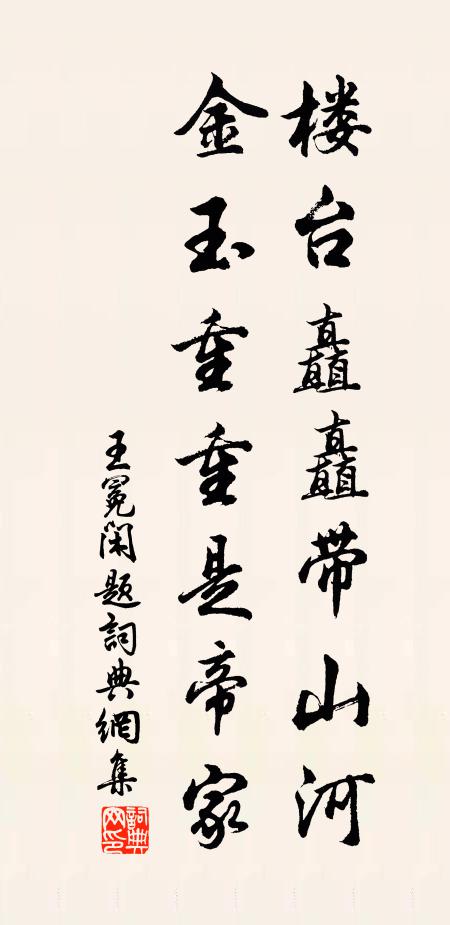 楼台矗矗带山河
金玉重重是帝家
王冕闲题詞典網集
詞典网印